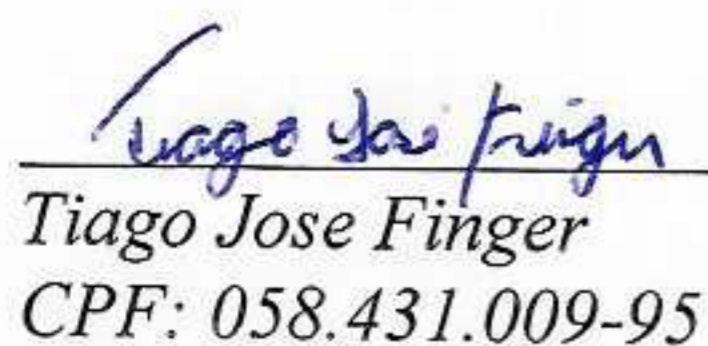 Tiago Jose Finger
Tiago Jose Finger
CPF: 058.431.009-95